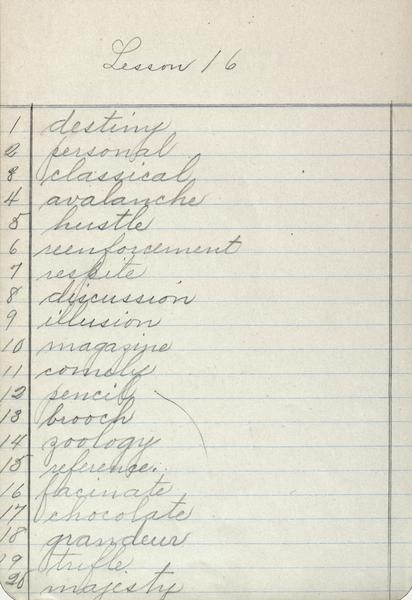 Lesson 16
1 destiny
2 personal
3 classical
4 avalanche
5 hustle
6 reenforcement
7 respite
8 discussion
9 illusion
10 magazine
11 comely
12 pencil
13 brooch
14 zoology
15 reference.
16 facinate
17 chocolate
18 grandeur
19 trifle
20 majesty